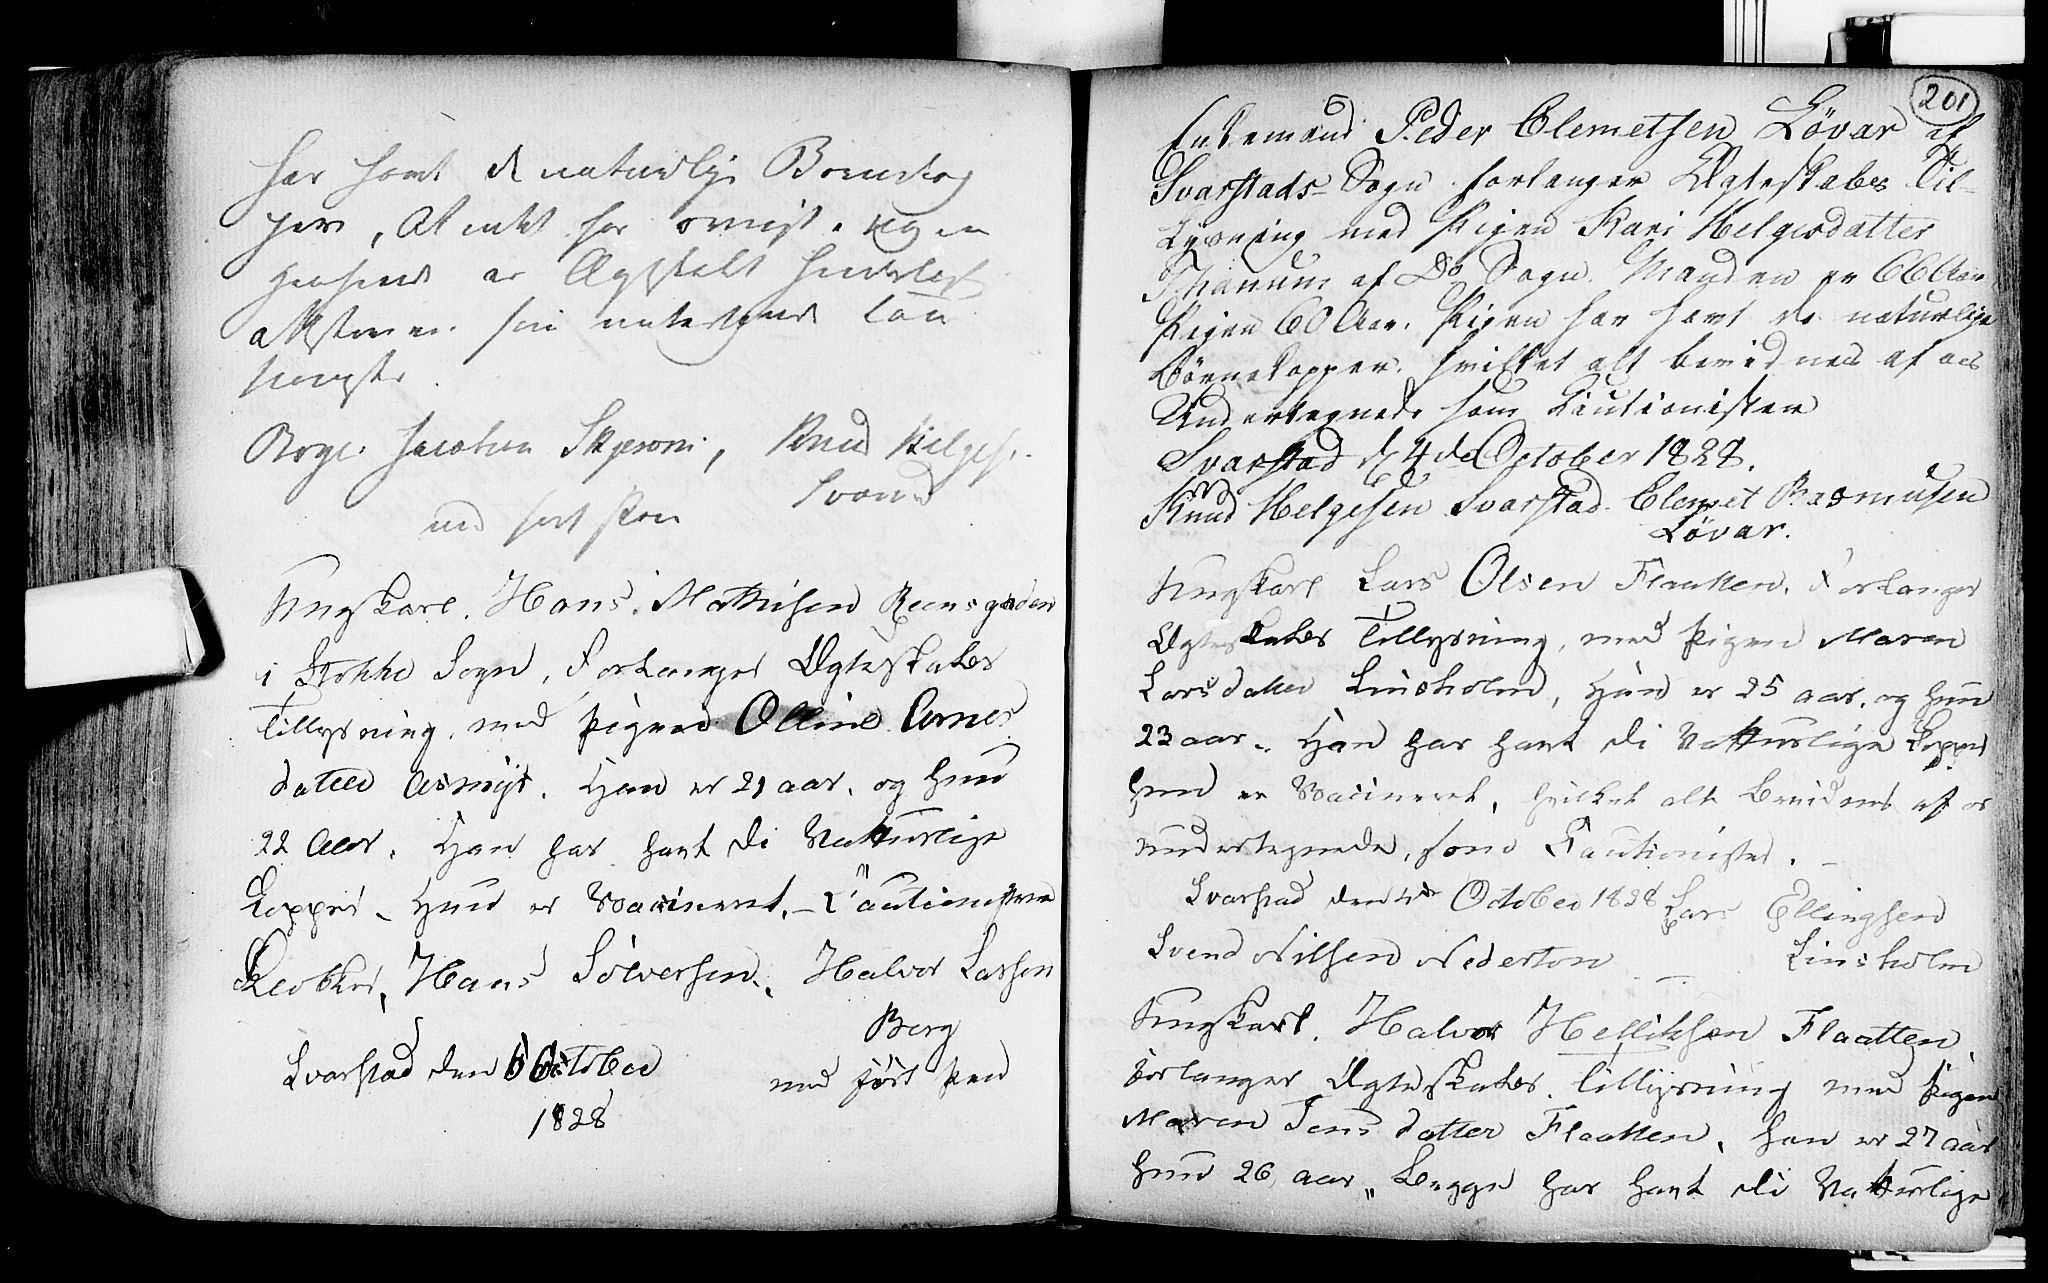 har havt de naturlige
at intet har
er Ægteskabet
som undertegnede
Knud Helgesen
med ført Pen
Ungkarl Hans Mathisen Reensgorden
i Stokke Sogn, Forlanger Ægteskabes
Tillysning, med Pigen Olline Arnes
datter Asmyr. Han er 21 aar, og hun
22 Aar. Han har havt di Natturlige
Kopper, Hun er Vacineret, Cautionisterne
Klokker, Hans Sølversen, Halvor Larsen
Berg
Svarstad den 6 October
med ført Pen
1828
201
Enkemand Peder Clemetsen Løvar af
Svarstads Sogn forlanger Ægteskabes Til-
Lysning med Pigen Kari Helgesdatter
Manum af Do Sogn. Manden er 66 Aar
Pigen 60 Aar. Pigen har havt de naturlige
Børnekopper. hvilket alt bevidnes af os
Undertegnede som Cautionister
Svarstad d 4de October 1828.
Knud Helgesen Svarstad Clemet Rasmusen
Løvar.
Ungkarl Lars Olsen Flaatten, Forlanger
Ægteskabes Tillysning, med Pigen Maren
Larsdatter Linsholm, Han er 25 aar, og hun
23 aar. Han har havt di Natturlige Kopper
hun er Vacineret, hvilket alt Bevidnes af os
undertegnede, som Cautionister.
Svarstad den 4de October 1828 Lars Ellingsen
Svend Nilsen Nederton Linsholm
Ungkarl, Halvor Helliksen Flaatten
forlanger Ægteskabes Tillysning med Pigen
Maren Jens datter Flaatten, han er 27 aar
hun 26 aar, Begge har havt di Natturlige